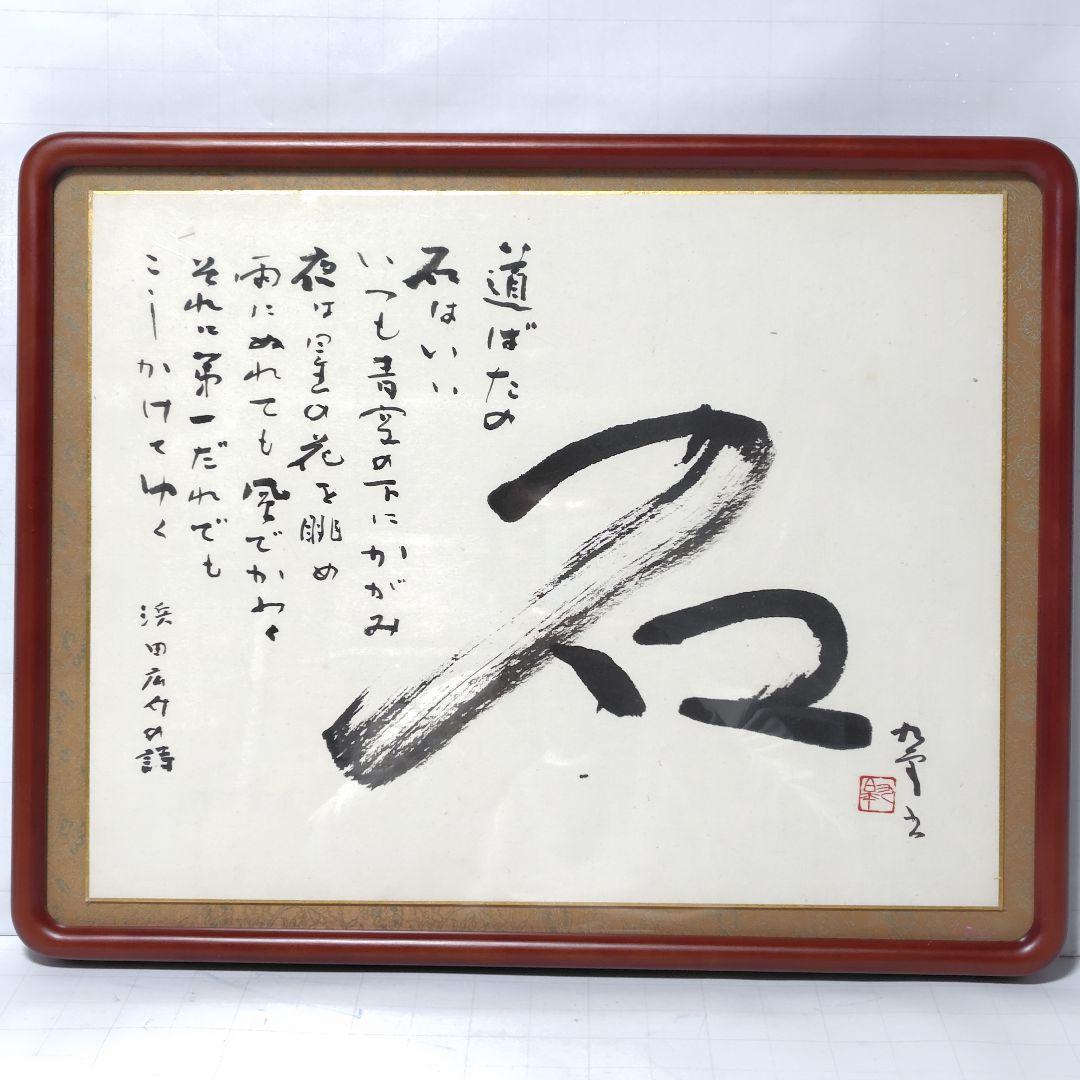 石
道ばたの
石はいい
いつも青空の下にかがみ
夜は星の花を眺め
雨にぬれても風でかわく
それに第一だれでも
こしかけてゆく
浜田広介の詩